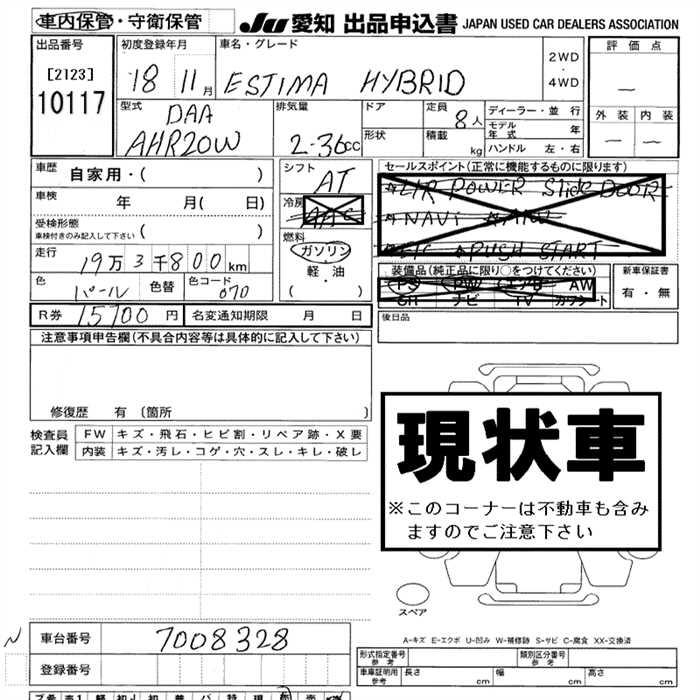 車内保管・守衛保管 JU 愛知 出品申込書 JAPAN USED CAR DEALERS ASSOCIATION
出品番号 初度登録年月 車名・グレード 評価点
[2123] 18 11月 ESTIMA HYBRID 2WD・4WD
10117
型式 DAA 排気量 ドア 定員 8人 ディーラー・並行 外装 内装
AHR20W 2-36cc 形状 積載 kg モデル年式 年
ハンドル 左・右
車歴 自家用・( ) シフト AT セールスポイント(正常に機能するものに限ります)
車検 年 月( 日) 冷房 AAC POWER Slide DOOR
受検形態 NAVI
車検付きのみ記入して下さい ( ) 燃料 PUSH START
走行 19万3千800km ガソリン 装備品(純正品に限り○をつけてください) 新車保証書
軽・油 PS PW エアB AW 有・無
色 パール 色替 色コード 070 ( ) SR ナビ TV カワシート
R券 15700円 名変通知期限 月 日 後日品
注意事項申告欄(不具合内容等は具体的に記入して下さい)
修復歴 有 (箇所 )
検査員 FW キズ・飛石・ヒビ割・リペア跡・X要
記入欄 内装 キズ・汚レ・コゲ・穴・スレ・キレ・破レ
現状車
※このコーナーは不動車も含み
ますのでご注意下さい
スペア
A-キズ E-エクボ U-凹み W-補修跡 S-サビ C-腐食 XX-交換済
N 車台番号 7008328
登録番号
形式指定番号 参考 類別区分番号 参考
車庫証明用 参考 長さ cm 幅 cm 高さ cm